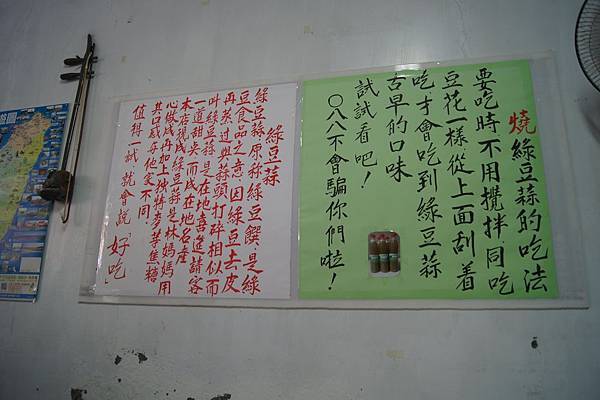 燒綠豆蒜的吃法
要吃時不用攪拌同吃
豆花一樣從上面刮着
吃才會吃到綠豆蒜
古早的口味
試試看吧!
〇八八不會騙你們啦!
綠豆蒜
綠豆蒜原称綠豆饌是綠
豆食品之意因綠豆去皮
再蒸过與蒜頭打碎相似而
叫綠豆蒜是在地喜進請客
一道甜央而成在地名產
本店現成綠豆蒜是林媽媽用
心做成再加上独特麥芽焦糖
其口感与他家不同
值得一試就會說「好吃」